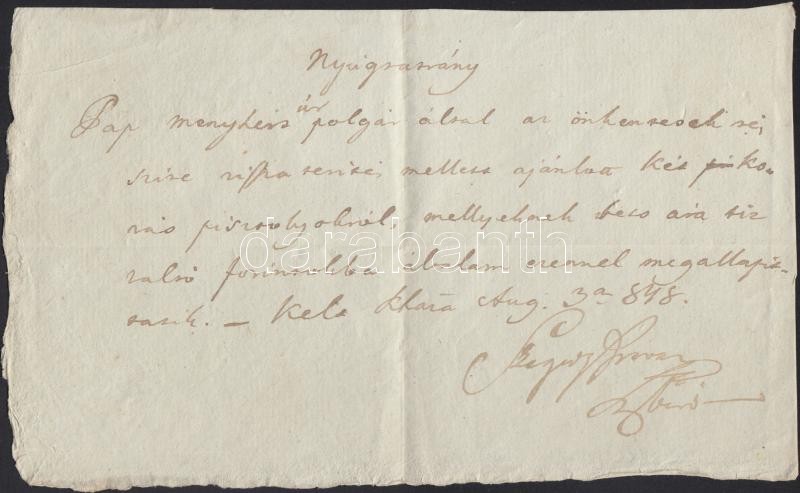 Nyugtatvány
Pap Menyhért úr polgár által az önkentesek ré,
szire visszatérités mellett ajánlott két ko,
vás pisztolyokról, mellyeknek becs ára tiz
valtó forintokba általam ezennel megallapit,
tatik. – Kelt Aug. 3a 848.
biró
darabanth